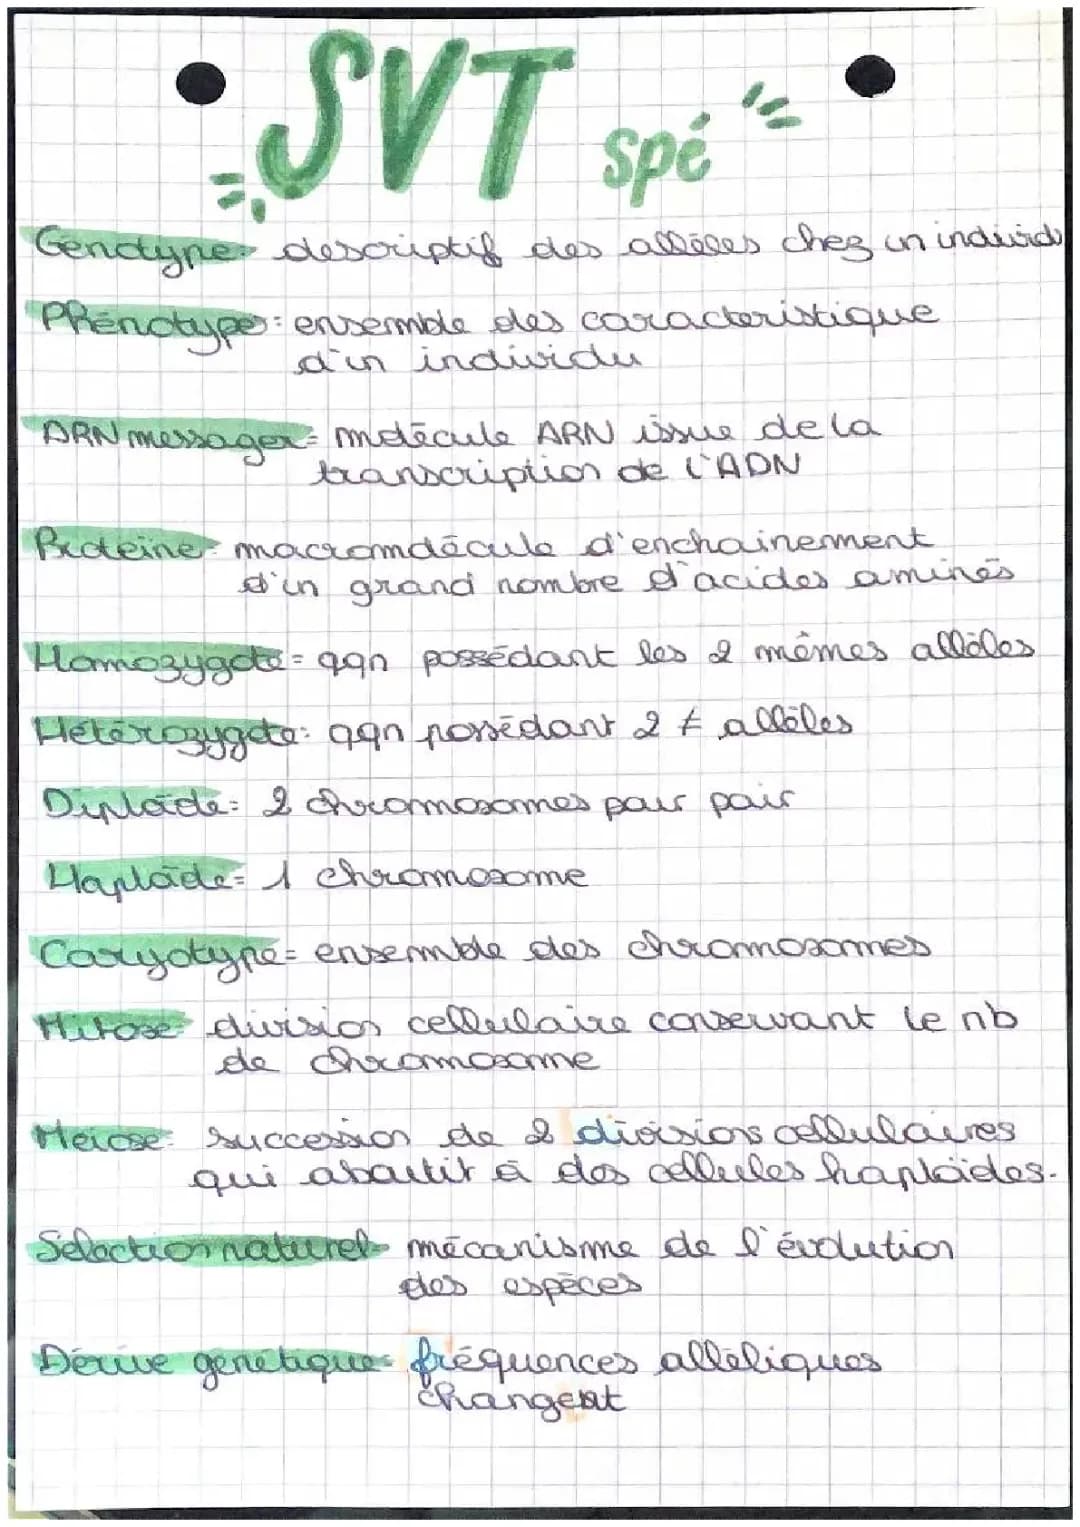 SVT spé
Génotype= descriptif des allèles chez un individu
Phénotype: ensemble des caractéristique
d'un individu
ARN messager= molécule ARN issue de la
transcription de l'ADN
Protéine= macromolécule d'enchainement
d'un grand nombre d'acides aminés
Homozygote= qqn possédant les 2 mêmes allèles
Hétérozygote: qqn possédant 2 ≠ allèles
Diploïde= 2 chromosomes pour pair
Haploïde= 1 chromosome
Caryotype= ensemble des chromosomes
Mitose= division cellulaire conservant le nb
de chromosome
Meiose= succession de 2 divisions cellulaires
qui aboutit à des cellules haploïdes.
Sélection naturel= mécanisme de l'évolution
des espèces
Dérive génétique= fréquences alléliques
changent